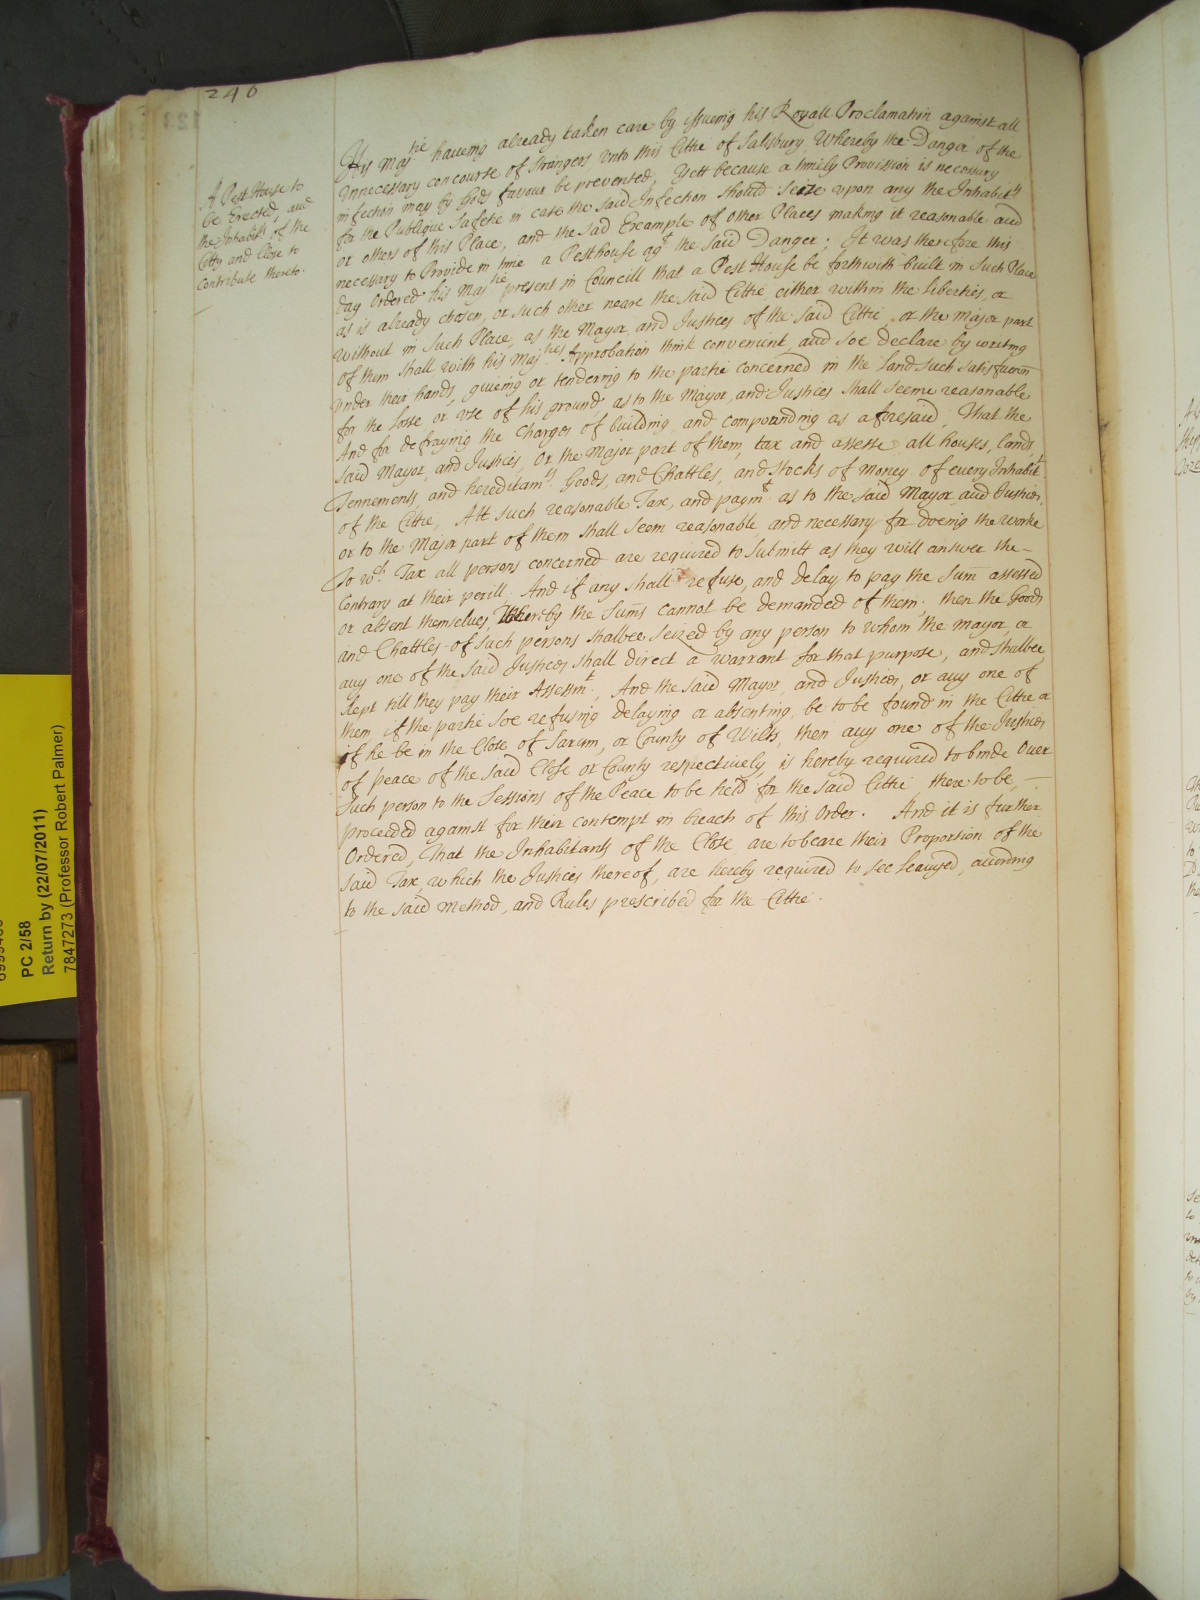 246
A Pest House to
be Erected, and
the Inhabits of the
Citty and Close to
contribute thereto.
His Maj.tie haueing already taken care by issueing his Royall Proclamation against all
Unnecessary concourse of Strangers unto this Cittie of Salisbury, Whereby the Danger of the
infection may by Gods favour be prevented, Yett because a timely Provision is necessary
for the Publique Safetie in case the said Infection should Seize upon any the Inhabit.ts
or others of this Place, and the sad Example of other Places making it reasonable and
necessary to Provide in time a Pesthouse ag.t the said Danger; It was therefore this
day Ordered his Maj.tie present in Councill that a Pest House be forthwith built in such Place
as is already chosen, or such other neare the said Cittie either within the liberties, or
without in such Place, as the Mayor and Justices of the said Cittie, or the major part
of them shall with his Maj.ties Approbation think convenient, and soe declare by writing
under their hands, giueing or tendering to the partie concerned in the land such satisfaccon
for the losse or use of his ground as to the Mayor, and Justices shall seeme reasonable
And for defraying the Charges of building, and compounding as aforesaid, That the
said Mayor, and Justices, Or the Major part of them, tax and assesse all houses, lands,
Tennements, and hereditam.ts Goods, and Chattles, and Stocks of money of every Inhabit.t
of the Cittie, Att such reasonable Tax, and paym.t as to the said Mayor and Justices,
or to the Major part of them shall seem reasonable, and necessary for doeing the worke
To w.ch Tax all persons concerned are required to submitt as they will answer the -
Contrary at their perill. And if any shall refuse, and delay to pay the Sum assessed
or absent themselues, Whereby the Sums cannot be demanded of them, then the Goods
and Chattles of such persons shalbee seized by any person to whom the Mayor, or
any one of the said Justices shall direct a warrant for that purpose, and shalbee
kept till they pay their Assessm.t, And the said Mayor, and Justices, or any one of
them, if the partie soe refusing delaying or absenting, be to be found in the Cittie or
if he be in the Close of Sarum, or County of Wilts, then any one of the Justices
of peace of the said Close or County respectively, is hereby required to binde Over
such person to the Sessions of the Peace to be held for the said Cittie, there to be, -
proceeded against for their contempt in breach of this Order. And it is further
Ordered, That the Inhabitants of the Close are to beare their Proportion of the
said Tax, which the Justices thereof, are hereby required to see leauyed, according
to the said method, and Rules prescribed for the Cittie.
PC 2/58
Return by (22/07/2011)
7847273 (Professor Robert Palmer)